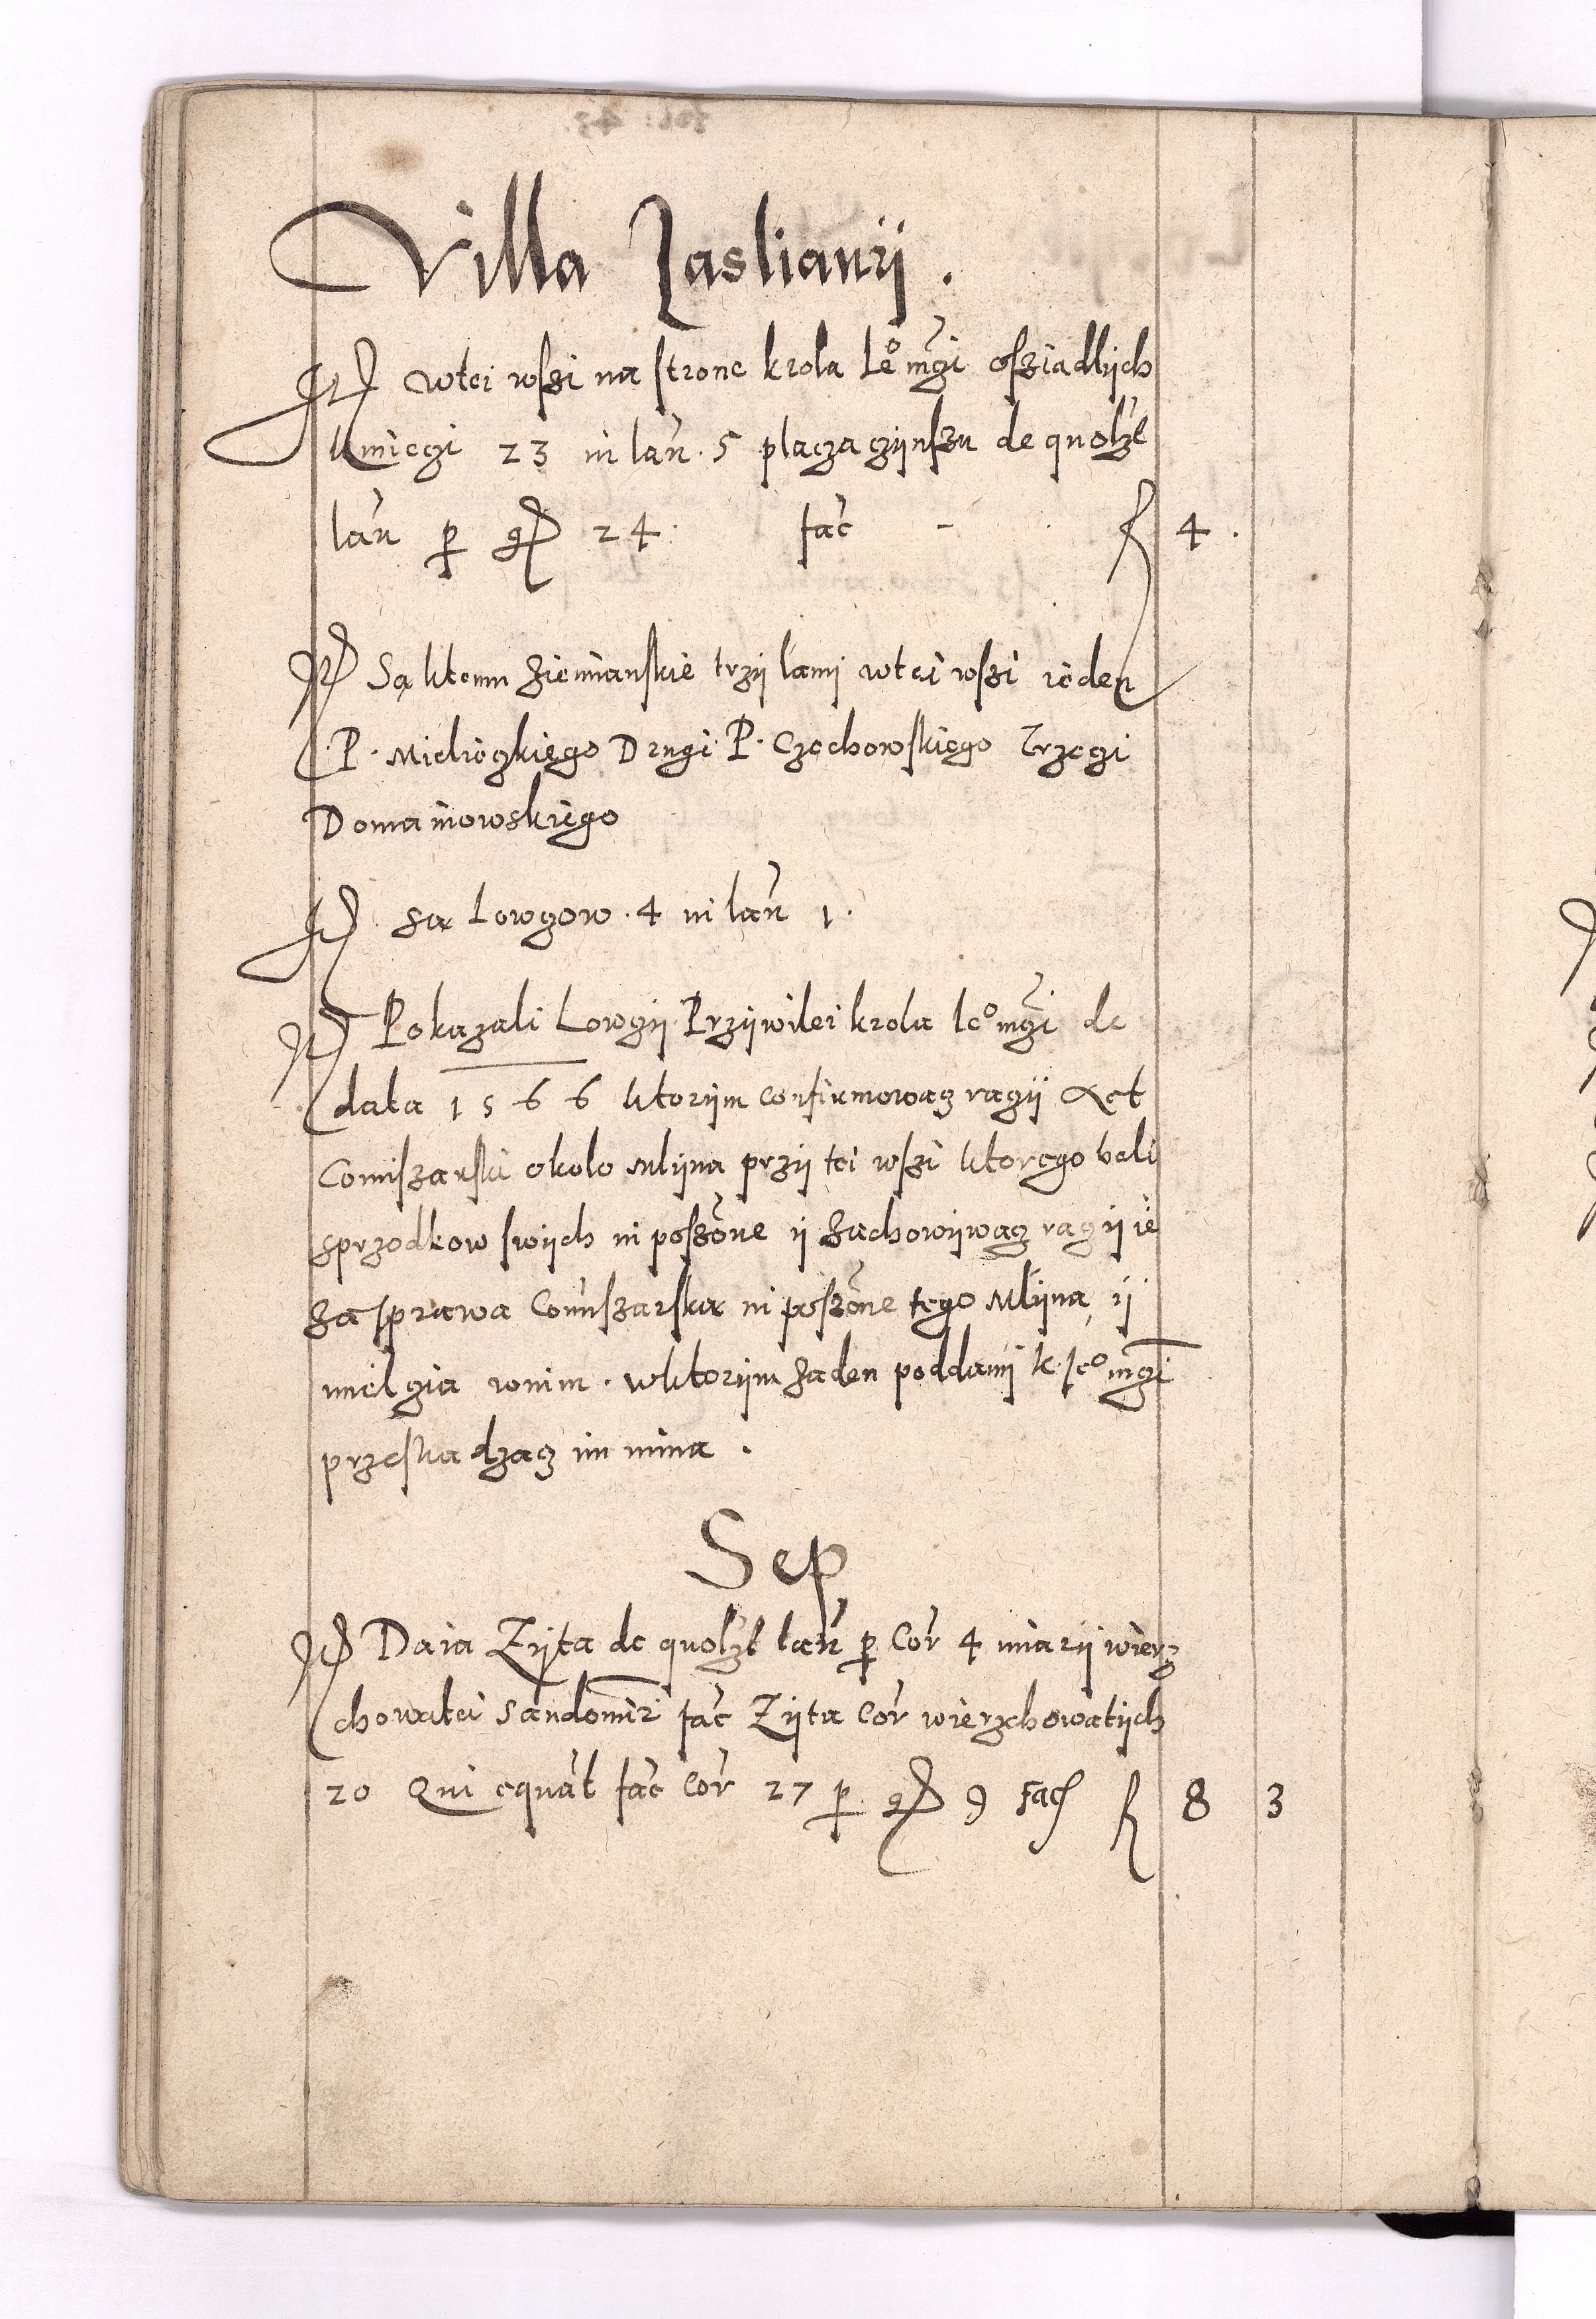 Villa Jaslianÿ.
It wtei wszi na strone krola Ieo mczi osziadlÿch
kmieczi 23 in lan. 5 placza czÿnszu de quolzt
lan p gr 24. fac - f 4.
It Są ktemu Ziemianskie trzÿ lanÿ wtei wszi ieden
P. Mieliczkięgo Drugi P. Czechowskiego Trzeczi
Domainowskięgo
It sa Lowczow. 4 in lan 1.
It Pokazali Lowczÿ Przÿwilei krola Ieo mczi de
data 1566 ktorÿm confirmowacz raczÿ Act
Comiszarski okolo Mlÿna przÿ tei wszi ktorego beli
sprzodkow swÿch in poszone ÿ zachowÿwacz raczÿ ie
za sprawa Comiszarska in poszone tego Mlÿna, ÿ
mielczia wnim. wktorÿm zaden poddanÿ k. Ieo mczi
przeskadzacz im nima.
Sep
It Daia Zÿta de quolzt lan p Cor 4 miarÿ wierz
chowatei Sandomir fac Zÿta Cor wierzchowatÿch
20 Qui equat fac Cor 27 p gr 9 fac f 8 3